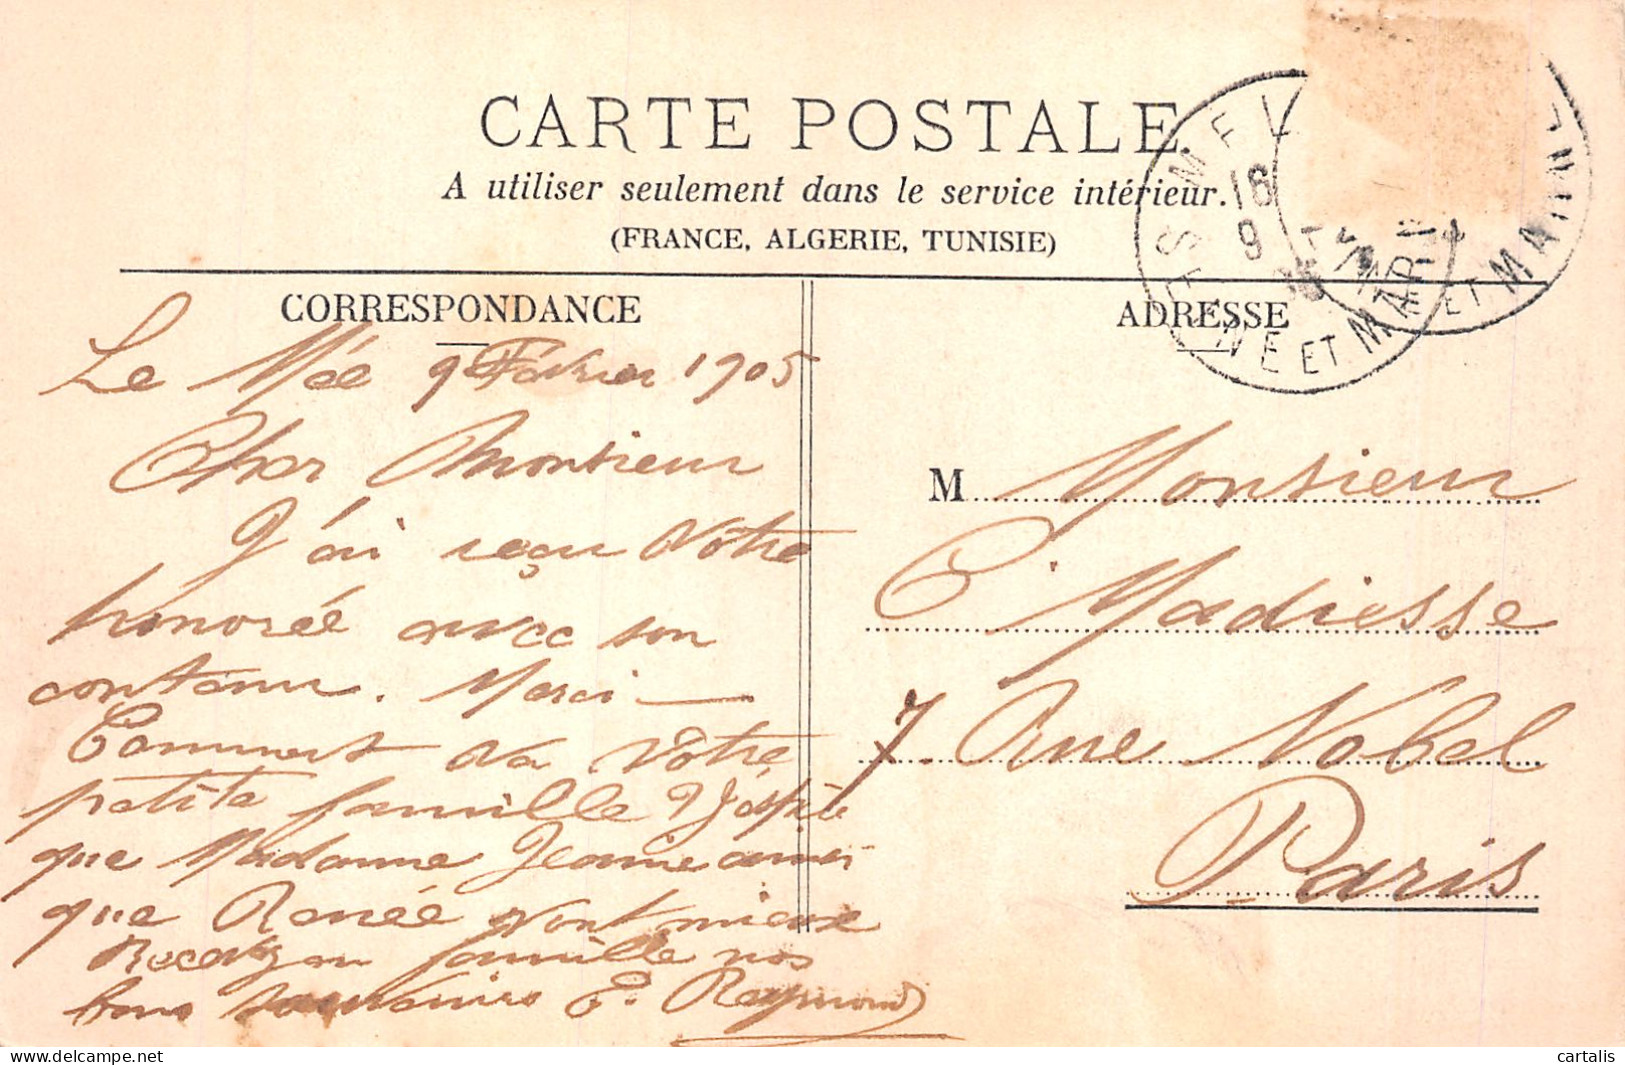 CARTE POSTALE
A utiliser seulement dans le service intérieur.
(FRANCE, ALGERIE, TUNISIE)
CORRESPONDANCE
Le Mée 9 Février 1905
Cher Monsieur
J'ai reçu Votre
honorée avec son
contenu. Merci
Comment va Votre
petite famille J'espère
que Madame Jeanne ainsi
que Renée vont mieux
Recevez en famille nos
bons souvenirs E. Raymond
ADRESSE
M Monsieur
C. Madiesse
7. Rue Nobel
Paris
MEL
18
9
SEINE ET MARNE
ET MARNE
www.delcampe.net
cartalis